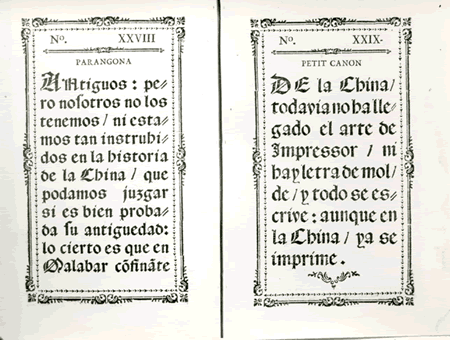 Nº. XXVIII
PARANGONA
ANtiguos: pe-
ro nosotros no los
tenemos / ni esta-
mos tan instrubi-
dos en la historia
de la China / que
podamos juzgar
si es bien proba-
da su antiguedad:
lo cierto es que en
Malabar cõfinãte
Nº. XXIX-
PETIT CANON
DE la China/
todavia no ha lle-
gado el arte de
Impressor / ni
hay letra de mol-
de / y todo se es-
crive: aunque en
la China / ya se
imprime.